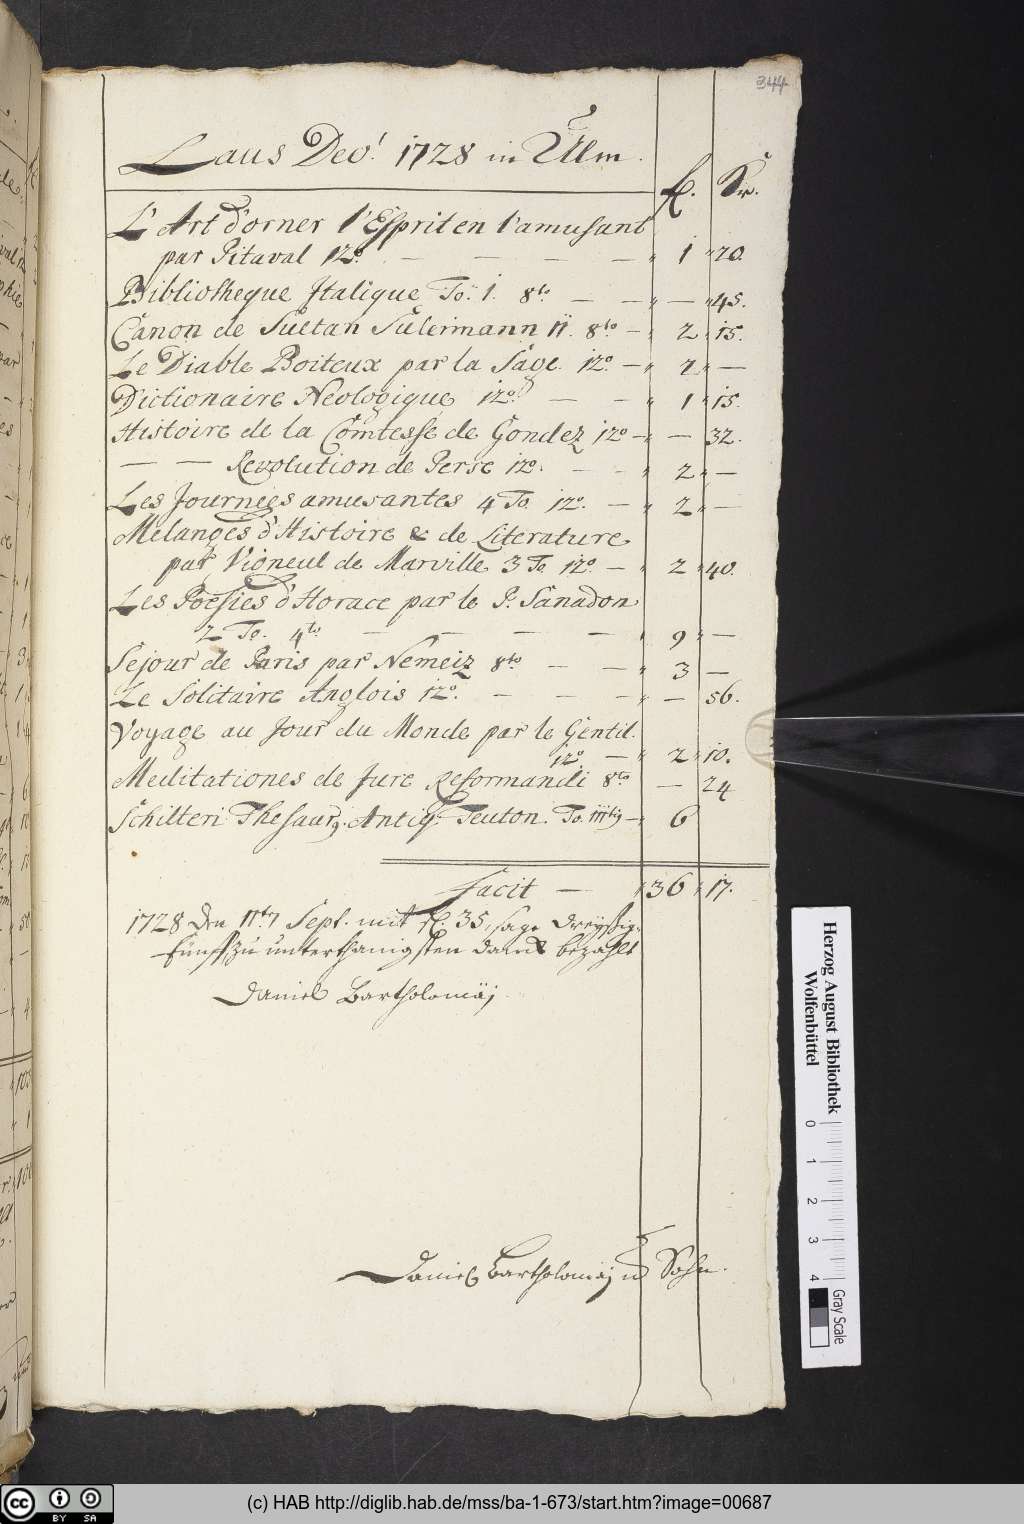 344
Laus Deo! 1728 in Ulm.
fl. Xr.
L'Art d'orner l'Esprit en l'amusant
par Pitaval 12º. — — — — 1 " 20.
Bibliotheque Italique To. 1. 8to. — — " — " 45.
Canon de Sultan Suleimann II. 8to — " 2 " 15.
Le Diable Boiteux par la Sage. 12º. — " 2 " —
Dictionaire Neologique 12º. — — " 1 " 15.
Histoire de la Comtesse de Gondez 12º — " — 32.
— — Revolution de Perse 12º. — — " 2 " —
Les Journees amusantes 4 To. 12º. — " 2 " —
Melanges d'Histoire & de Literature
par Vigneul de Marville 3 To. 12º. — " 2 " 40.
Les Poesies d'Horace par le P. Sanadon
2 To. 4to — — — — " 9 " —
Sejour de Paris par Nemeiz 8to — — " 3 —
Le Solitaire Anglois 12º. — — — " — 56.
Voyage au Tour du Monde par le Gentil.
12º. — " 2 " 10.
Meditationes de Jure Reformandi 8to — 24
Schilteri Thesaur. Antiq. Teuton. To. III — " 6
Facit — " 36 " 17.
1728 den 11t 7 Sept. mit fl. 35, sage dreyßig
fünff, zu unterthänigsten danck bezahlt
Daniel Bartholomäj
Daniel Bartholomäj u Sohn.
Herzog August Bibliothek
Wolfenbüttel
0 1 2 3 4
Gray Scale
cc BY SA
(c) HAB http://diglib.hab.de/mss/ba-1-673/start.htm?image=00687